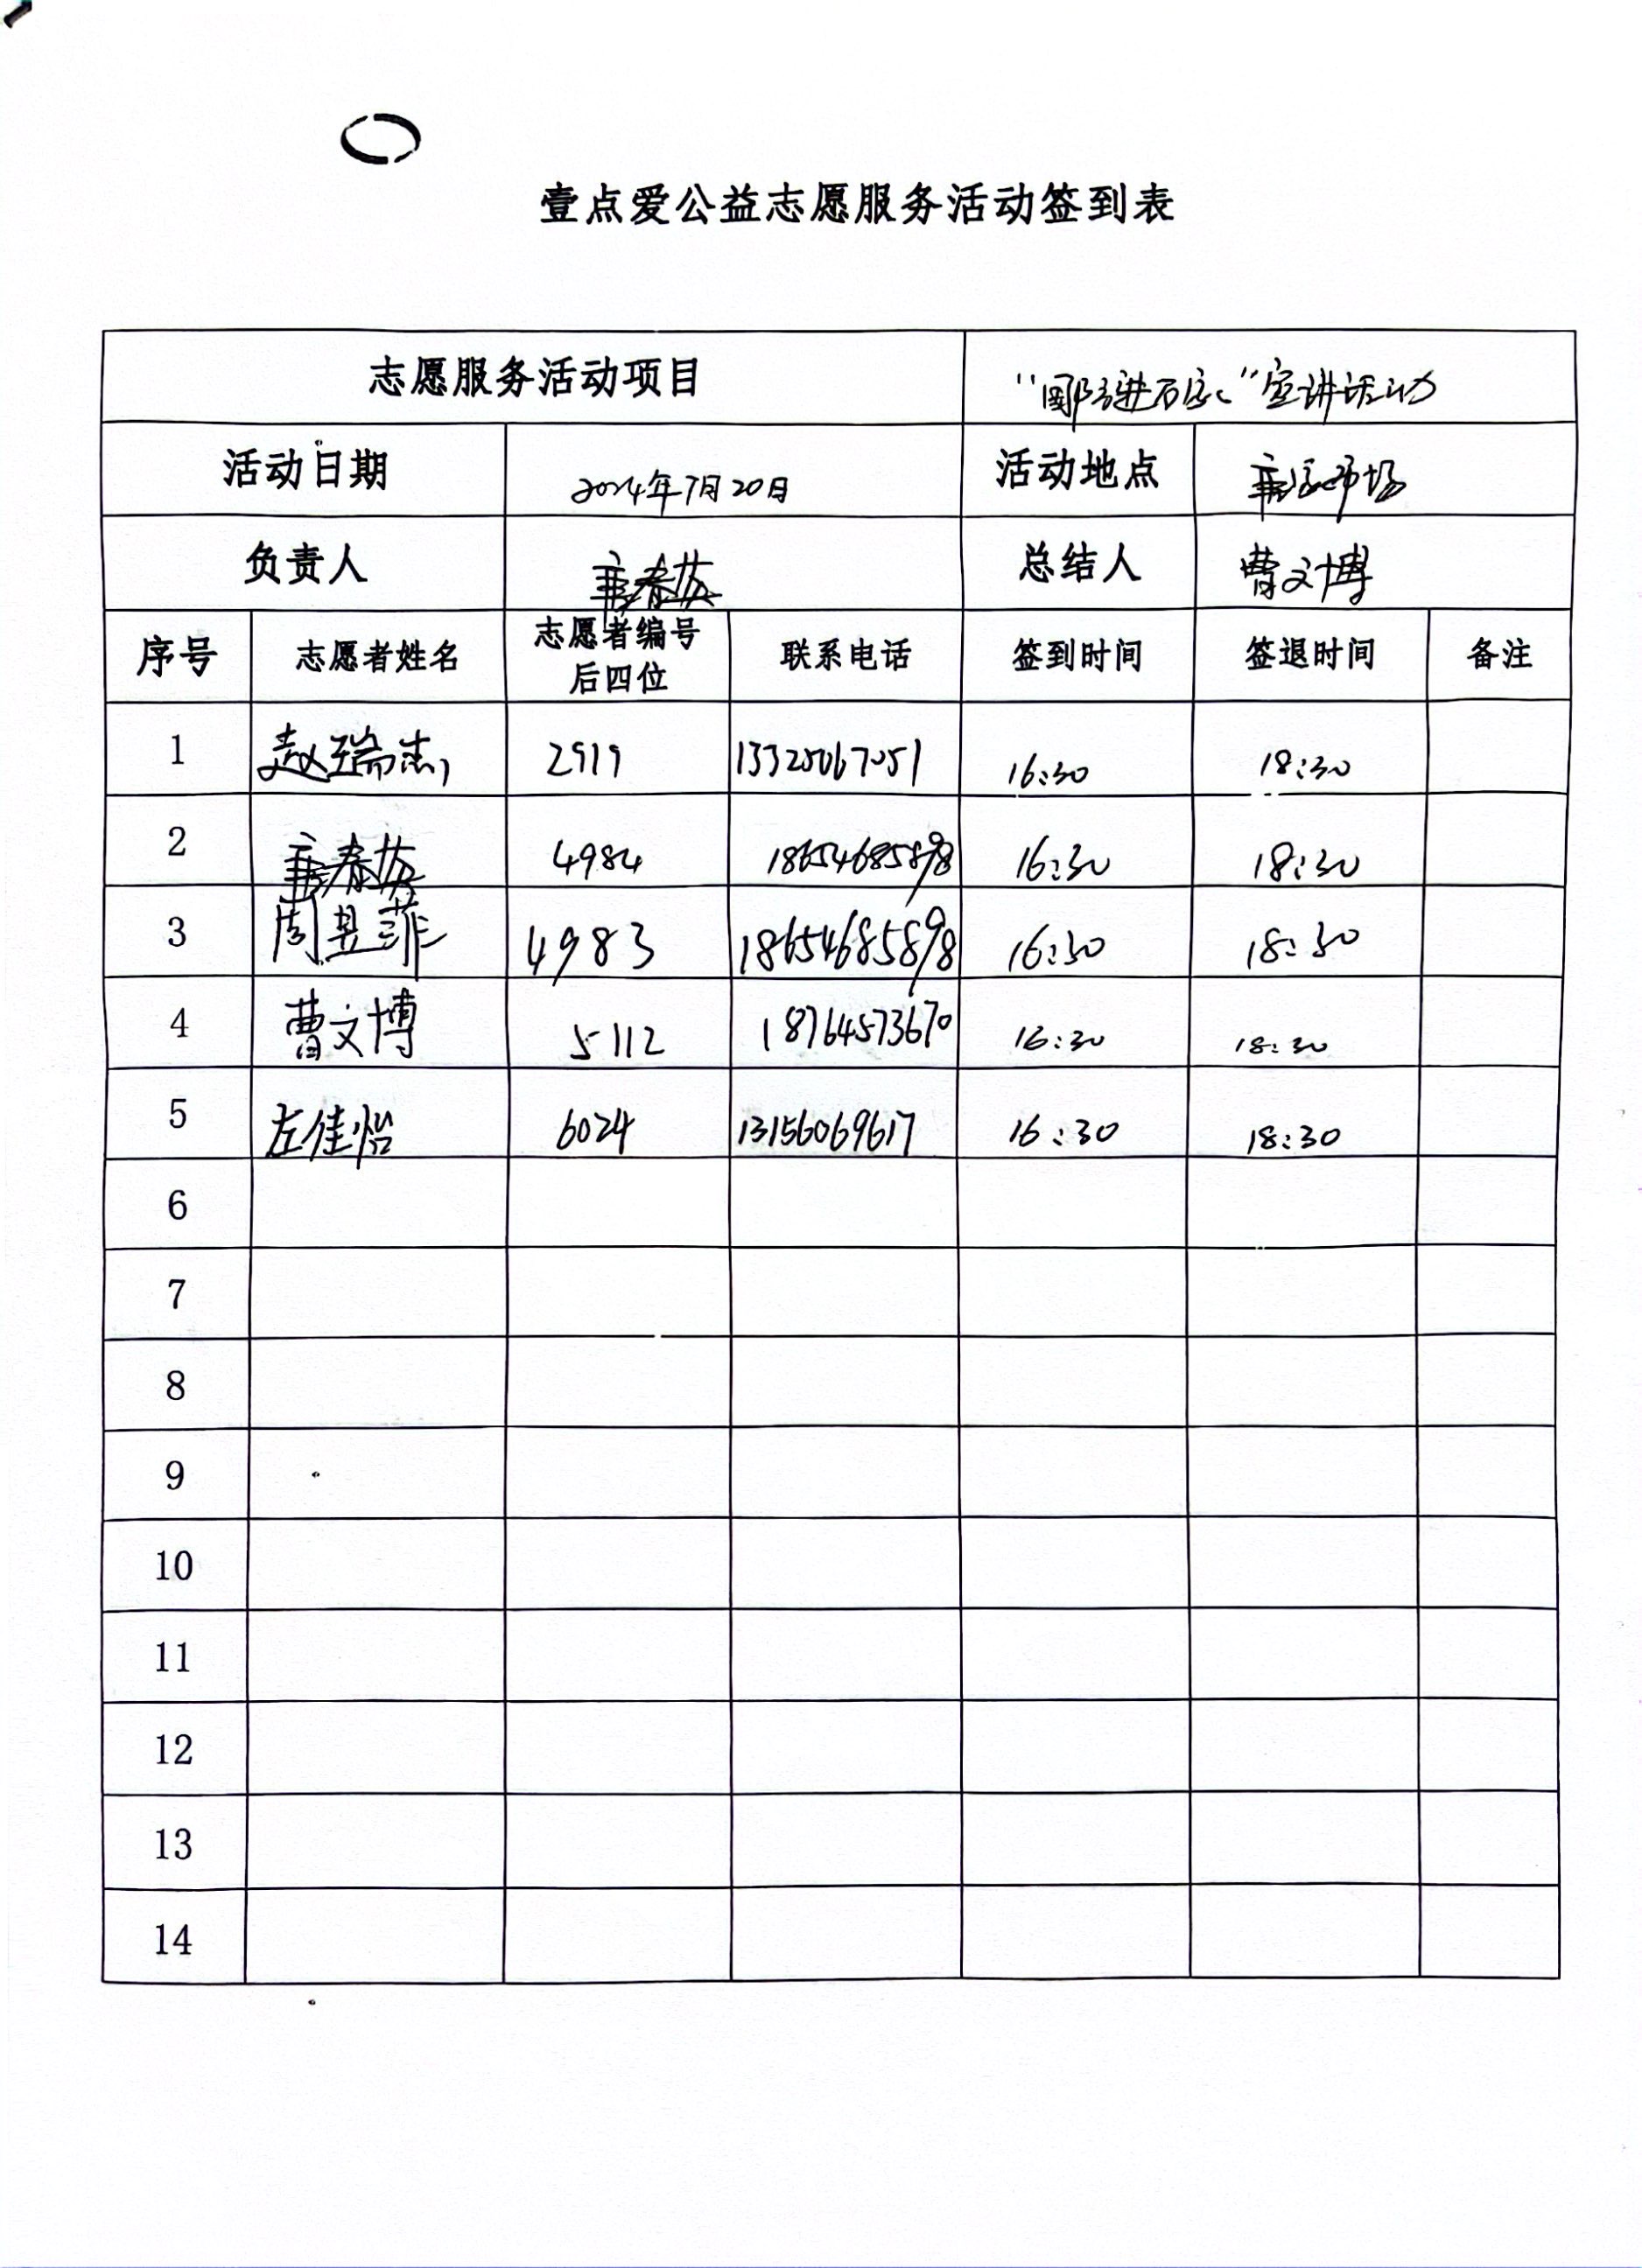 壹点爱公益志愿服务活动签到表
志愿服务活动项目 宣讲活动
活动日期 2024年7月20日 活动地点 市场
负责人 总结人 曹文博
序号 志愿者姓名 志愿者编号后四位 联系电话 签到时间 签退时间 备注
1 赵瑞杰 2919 13325067051 16:30 18:30
2 4984 18654685898 16:30 18:30
3 周昱菲 4983 18654685898 16:30 18:30
4 曹文博 5112 18764573670 16:30 18:30
5 左佳怡 6024 13156069617 16:30 18:30
6
7
8
9
10
11
12
13
14